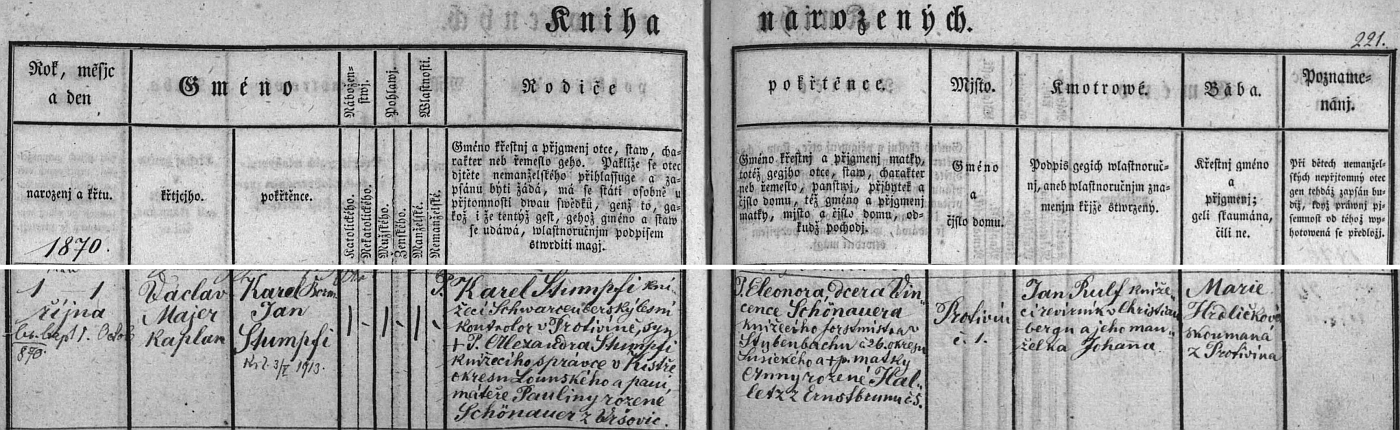 Kniha narozených.
221.
Rok, měsjc
a den
narozenj a křtu.
1870.
Gméno
křtjcjho.
pokřtěnce.
Náboženstwj.
Katolického.
Nekatolického.
Pohlawj.
Mužského.
Ženského.
Wlastnosti.
Manželské.
Nemanželské.
Rodiče
Gméno křestnj a přjgmenj otce, staw, cha-
rakter neb řemeslo geho. Pakliže se otec
djtěte nemanželského přihlassuge a za-
psánu býti žádá, má se státi osobně u
přjtomnosti dwau swědků, genž to, ga-
kož i že tentýž gest, gehož gméno a staw
se udáwá, wlastnoručnjm podpisem
stwrditi magj.
pokřtěnce.
Gméno křestnj a přjgmenj matky,
totéž gegjho otce, staw, charakter
neb řemeslo, panstwj, přjbytek a
čjslo domu, též gméno a přjgmenj
matky, mjsto a čjslo domu, od-
kudž pocházj.
Mjsto.
Gméno
a
čjslo domu.
Kmotrowé.
Podpis gegich wlastnoruč-
nj, aneb wlastnoručnjm zna-
menjm křjže stwrzený.
Bába.
Křestnj gméno
a
přjgmenj;
geli skaumána,
čili ne.
Pozname-
nánj.
Při dětech nemanžel-
ských nepřjtomný otec
gen tehdáž zapsán bu-
diž, když práwnj pj-
semnost od téhož wy-
hotowená se předložj.
1 1
října
Václav
Majer
kaplan
Karel
Jan
Stumpfi
1913.
Karel Stumpfi kní-
žecí Schwarcenberský lesní
kontrolor v Protivíně, syn
Alexandra Stumpfi
knížecího správce v
okresu Lounského a paní
máteře Pauliny rozené
Schönauer z Vršovic.
Eleonora, dcera Vin-
cence Schönauera
knížecího forstmistra v
č 26. okresu
Sušického a matky
Anny rozené Hal-
letz z Ernstbrunu č 5.
Protivín
č 1.
Jan Rulf kníže-
cí revírník v Christian
bergu a jeho man-
želka Johana.
Marie
Hrdličková
skoumaná
z Protivína